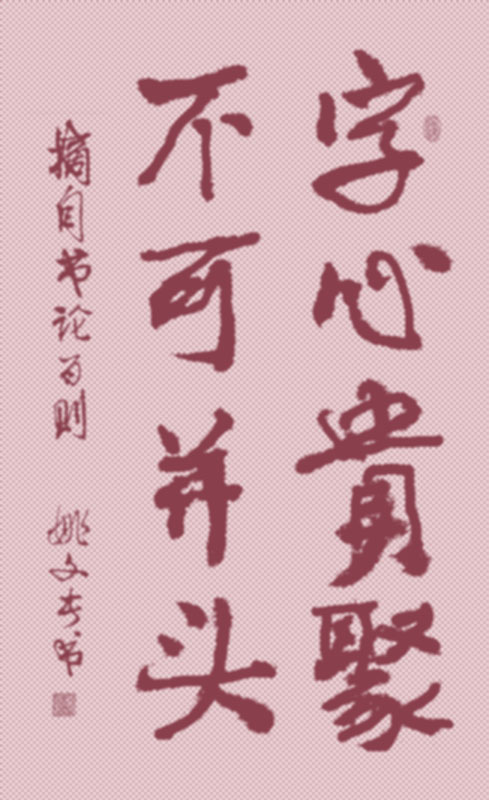 字心貴聚
不可并头
摘自书论百则
姚文书